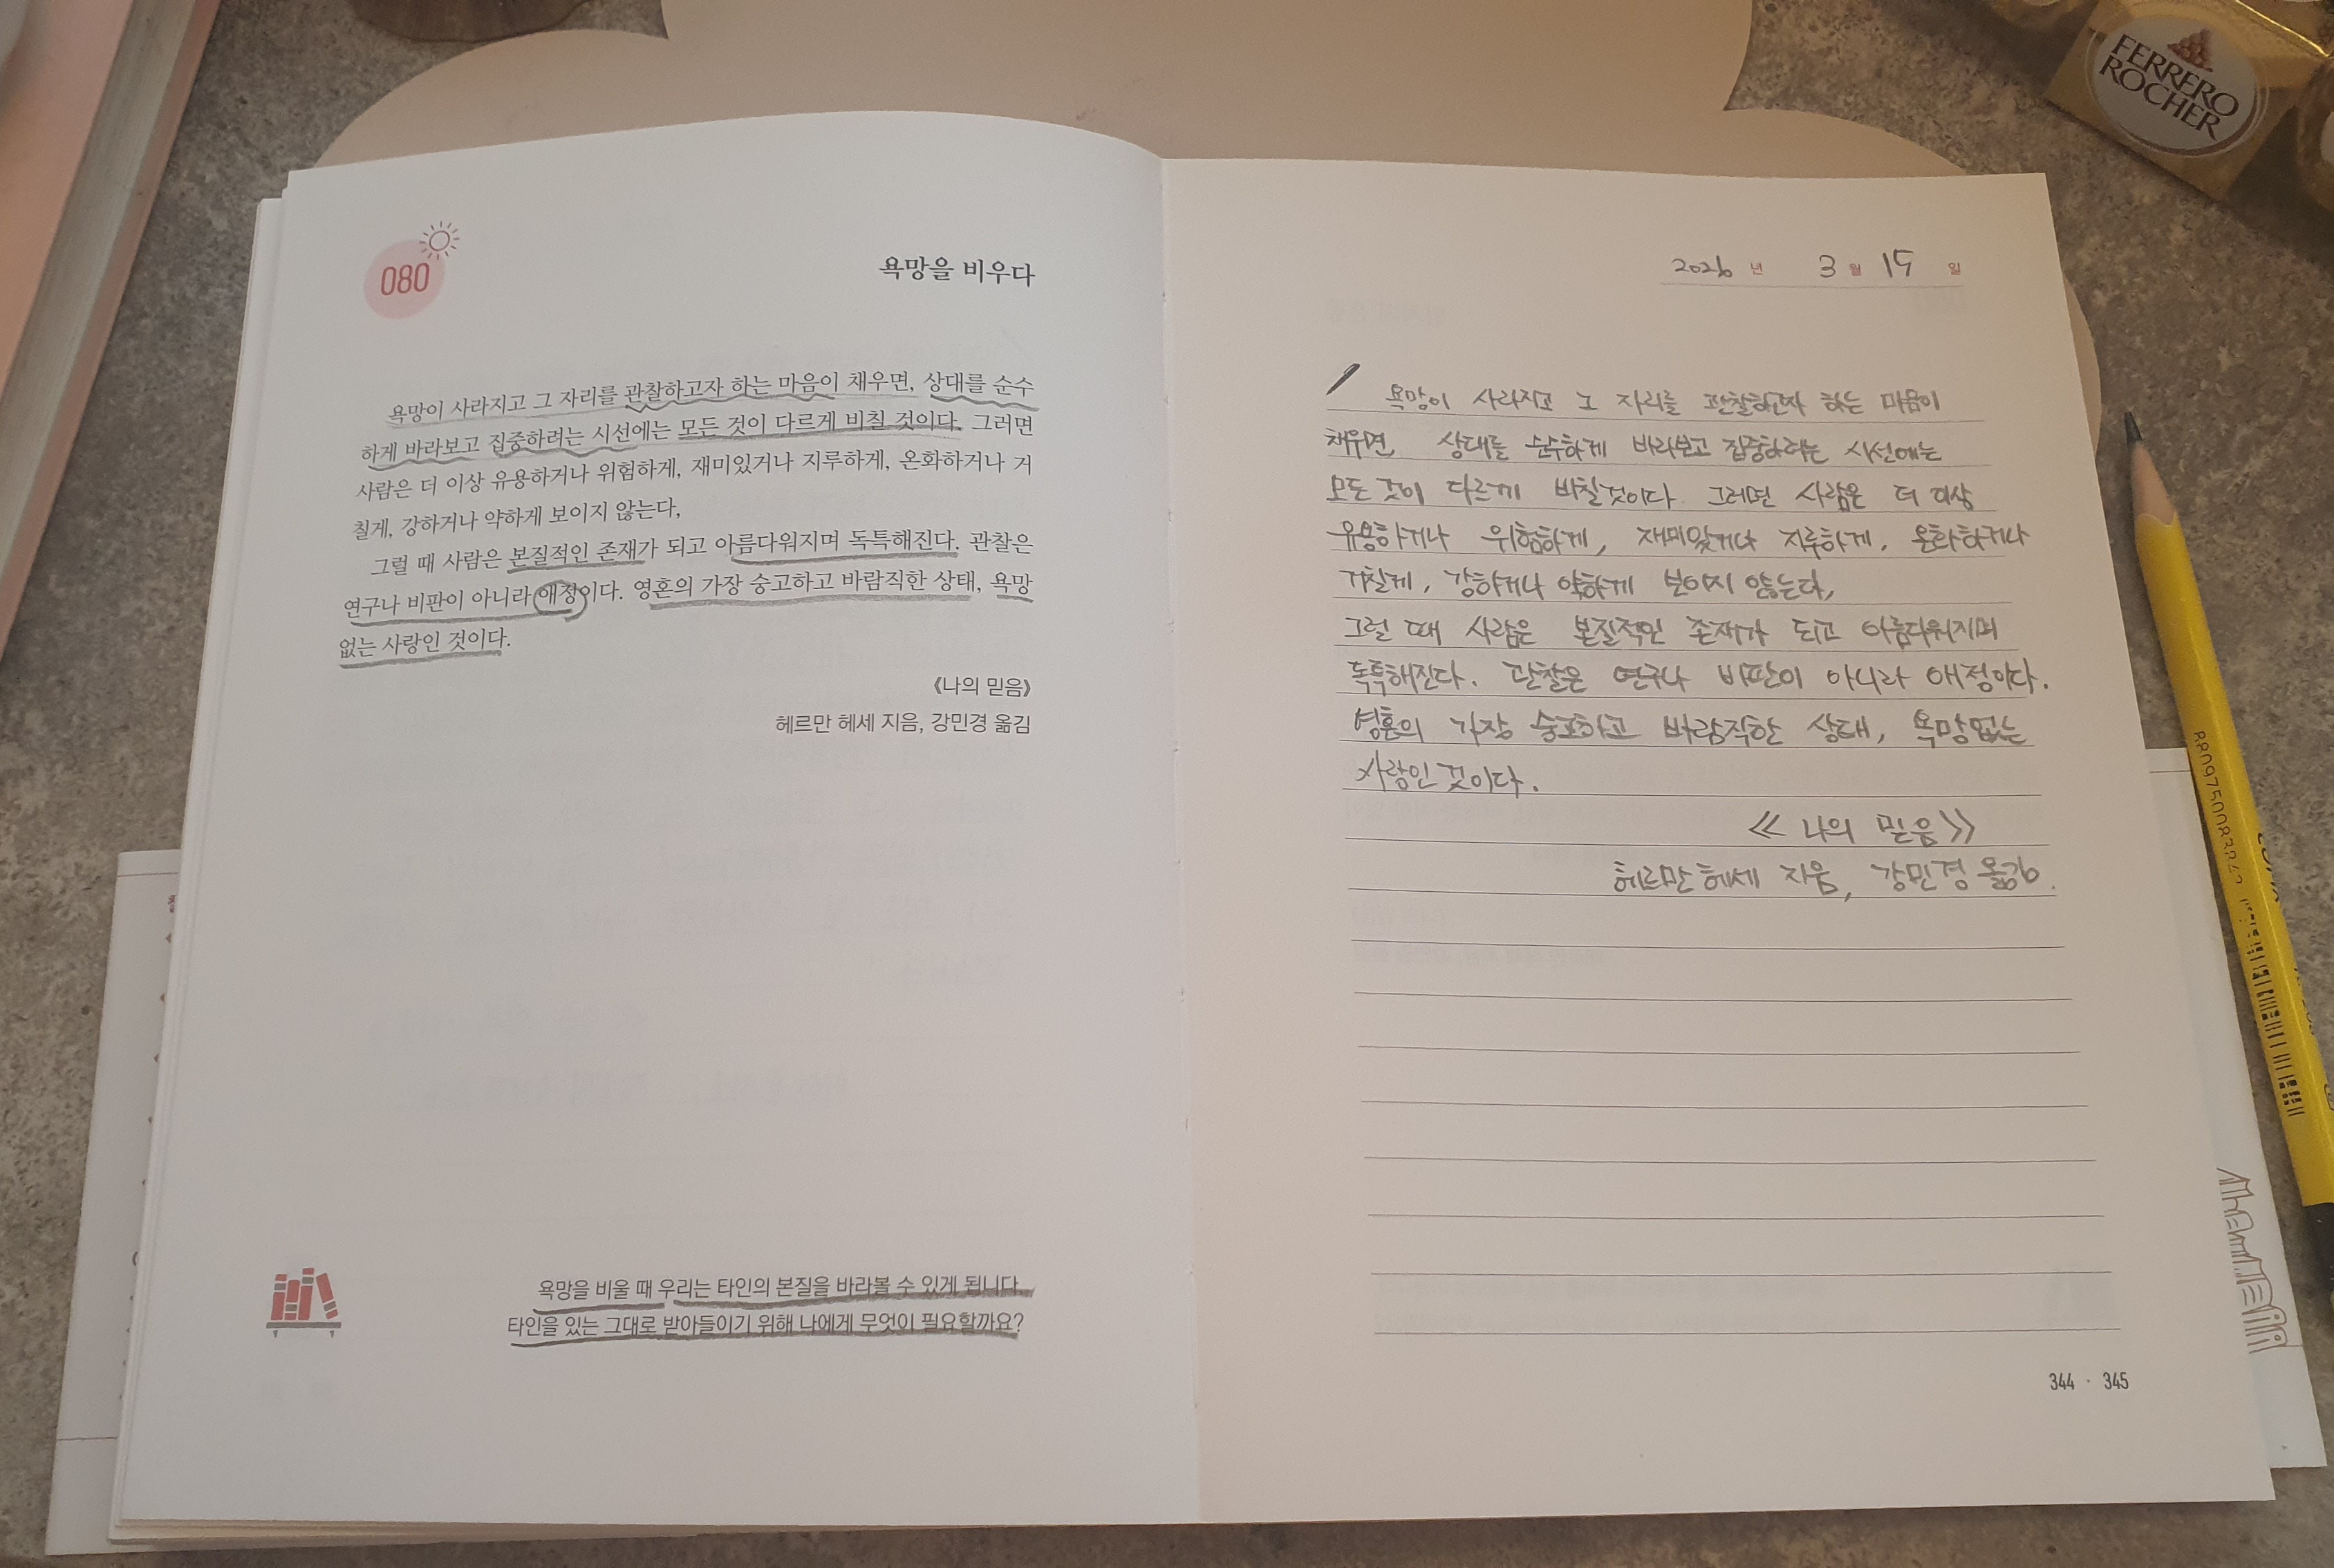 080
욕망을 비우다
욕망이 사라지고 그 자리를 관찰하고자 하는 마음이 채우면, 상대를 순수
하게 바라보고 집중하려는 시선에는 모든 것이 다르게 비칠 것이다. 그러면
사람은 더 이상 유용하거나 위험하게, 재미있거나 지루하게, 온화하거나 거
칠게, 강하거나 약하게 보이지 않는다,
그럴 때 사람은 본질적인 존재가 되고 아름다워지며 독특해진다. 관찰은
연구나 비판이 아니라 애정이다. 영혼의 가장 숭고하고 바람직한 상태, 욕망
없는 사랑인 것이다.
《나의 믿음》
헤르만 헤세 지음, 강민경 옮김
욕망을 비울 때 우리는 타인의 본질을 바라볼 수 있게 됩니다.
타인을 있는 그대로 받아들이기 위해 나에게 무엇이 필요할까요?
2026 년 3 월 15 일
욕망이 사라지고 그 자리를 관찰하고자 하는 마음이
채우면, 상대를 순수하게 바라보고 집중하려는 시선에는
모든 것이 다르게 비칠것이다. 그러면 사람은 더 이상
유용하거나 위험하게, 재미있거나 지루하게, 온화하거나
거칠게, 강하거나 약하게 보이지 않는다,
그럴 때 사람은 본질적인 존재가 되고 아름다워지며
독특해진다. 관찰은 연구나 비판이 아니라 애정이다.
영혼의 가장 숭고하고 바람직한 상태, 욕망없는
사랑인 것이다.
《 나의 믿음》
헤르만 헤세 지음, 강민경 옮김.
344 · 345
FERRERO
ROCHER